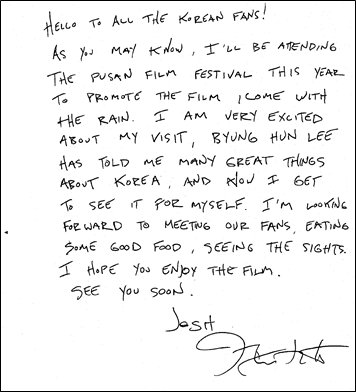 HELLO TO ALL THE KOREAN FANS!
AS YOU MAY KNOW, I'LL BE ATTENDING
THE PUSAN FILM FESTIVAL THIS YEAR
TO PROMOTE THE FILM, I COME WITH
THE RAIN. I AM VERY EXCITED
ABOUT MY VISIT, BYUNG HUN LEE
HAS TOLD ME MANY GREAT THINGS
ABOUT KOREA, AND NOW I GET
TO SEE IT FOR MYSELF. I'M LOOKING
FORWARD TO MEETING OUR FANS, EATING
SOME GOOD FOOD, SEEING THE SIGHTS.
I HOPE YOU ENJOY THE FILM.
SEE YOU SOON.
JOSH